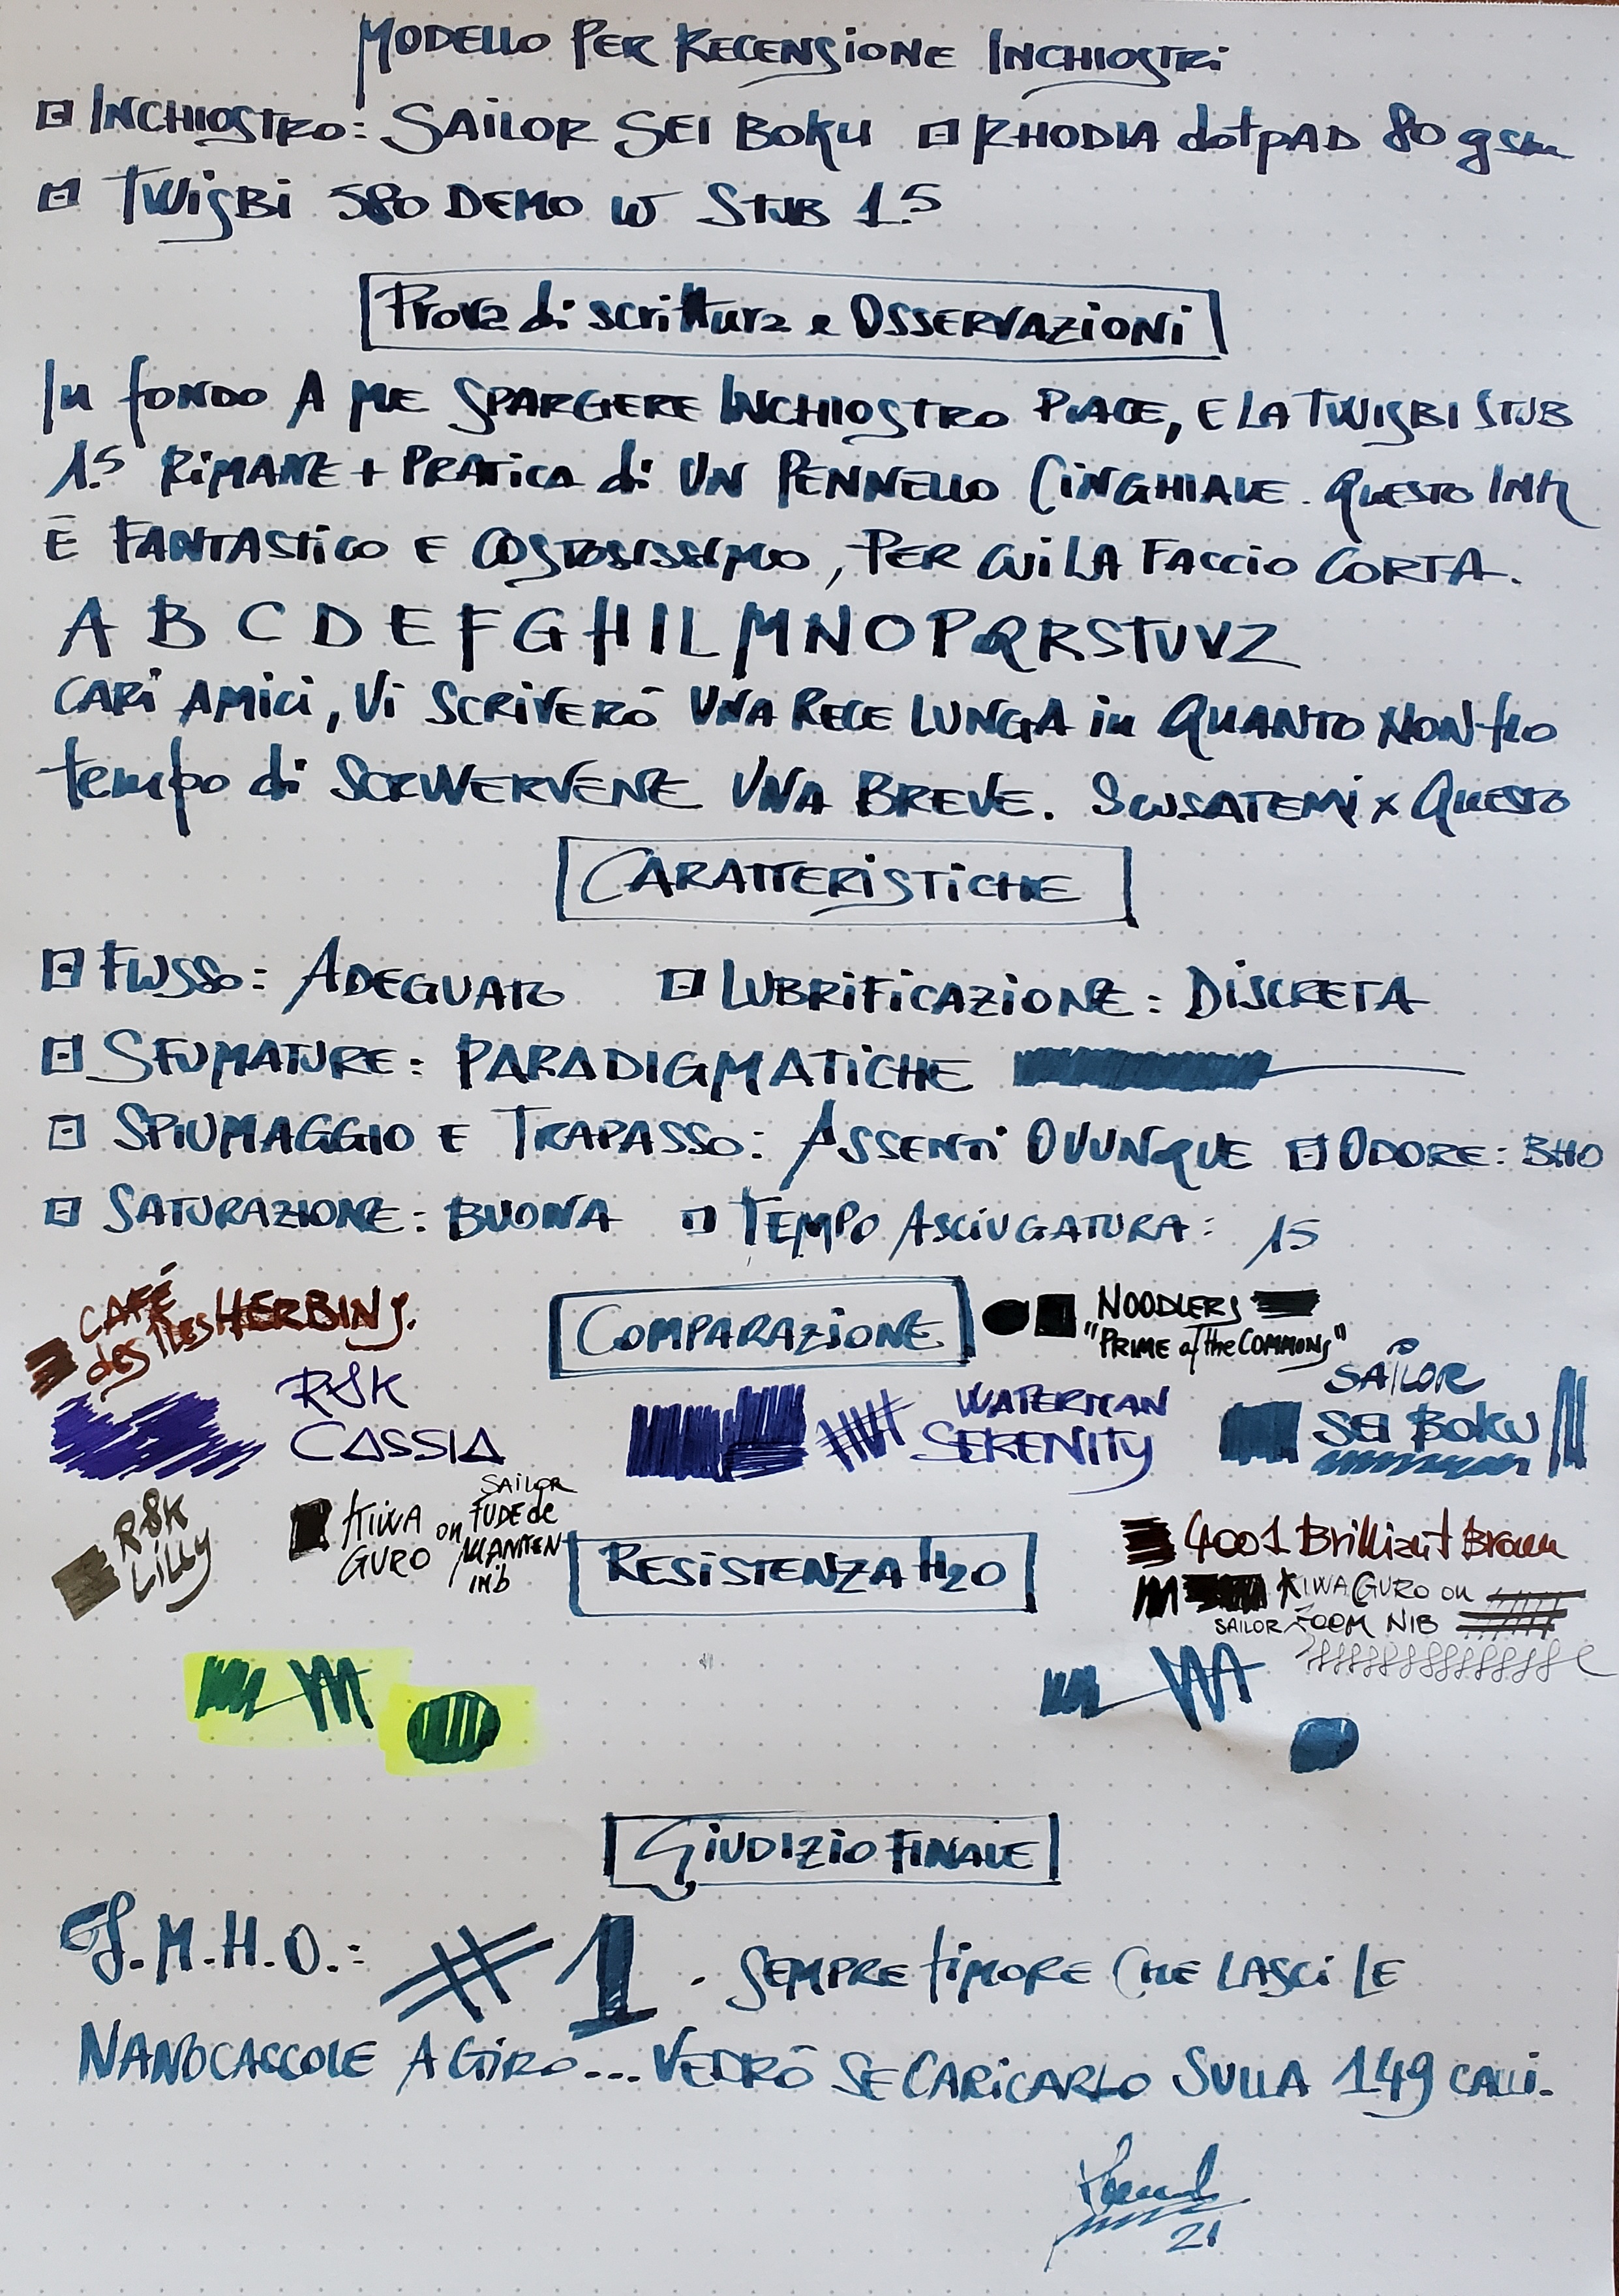 MODELLO PER RECENSIONE INCHIOSTRI
INCHIOSTRO: SAILOR SEI BOKU RHODIA dotPAD 80 gsm
TWISBI 580 DEMO W STUB 1.5
Prova di scrittura e OSSERVAZIONI
In fondo A ME SPARGERE INCHIOSTRO PIACE, E LA TWISBI STUB
1.5 RIMANE + PRATICA di UN PENNELLO CINGHIALE. QUESTO INK
È FANTASTICO E COSTOSISSIMO, PER CUI LA FACCIO CORTA.
A B C D E F G H I L M N O P Q R S T U V Z
CARI AMICI, VI SCRIVERÒ UNA RECE LUNGA in QUANTO NON HO
tempo di SCRIVERVENE UNA BREVE. SCUSATEMI x QUESTO
CARATTERISTICHE
FLUSSO: ADEGUATO LUBRIFICAZIONE: DISCRETA
SFUMATURE: PARADIGMATICHE
SPIUMAGGIO E TRAPASSO: ASSENTI OVUNQUE ODORE: BHO
SATURAZIONE: BUONA TEMPO ASCIUGATURA: 15
CAFÉ
des Iles HERBIN
COMPARAZIONE
NOODLERS
"PRIME of the COMMONS"
R&K
CASSIA
WATERMAN
SERENITY
SAILOR
SEI BOKU
R&K
LILLY
KIWA
GURO on
SAILOR
FUDE de
MANNEN
nib
RESISTENZA H2O
4001 Brilliant Brown
KIWA GURO on
SAILOR NIB
GIUDIZIO FINALE
I.M.H.O.: #1. SEMPRE timORE CHE LASCI LE
NANOCACCOLE A GIRO... VEDRÒ SE CARICARLO SULLA 149 CALLI.
21